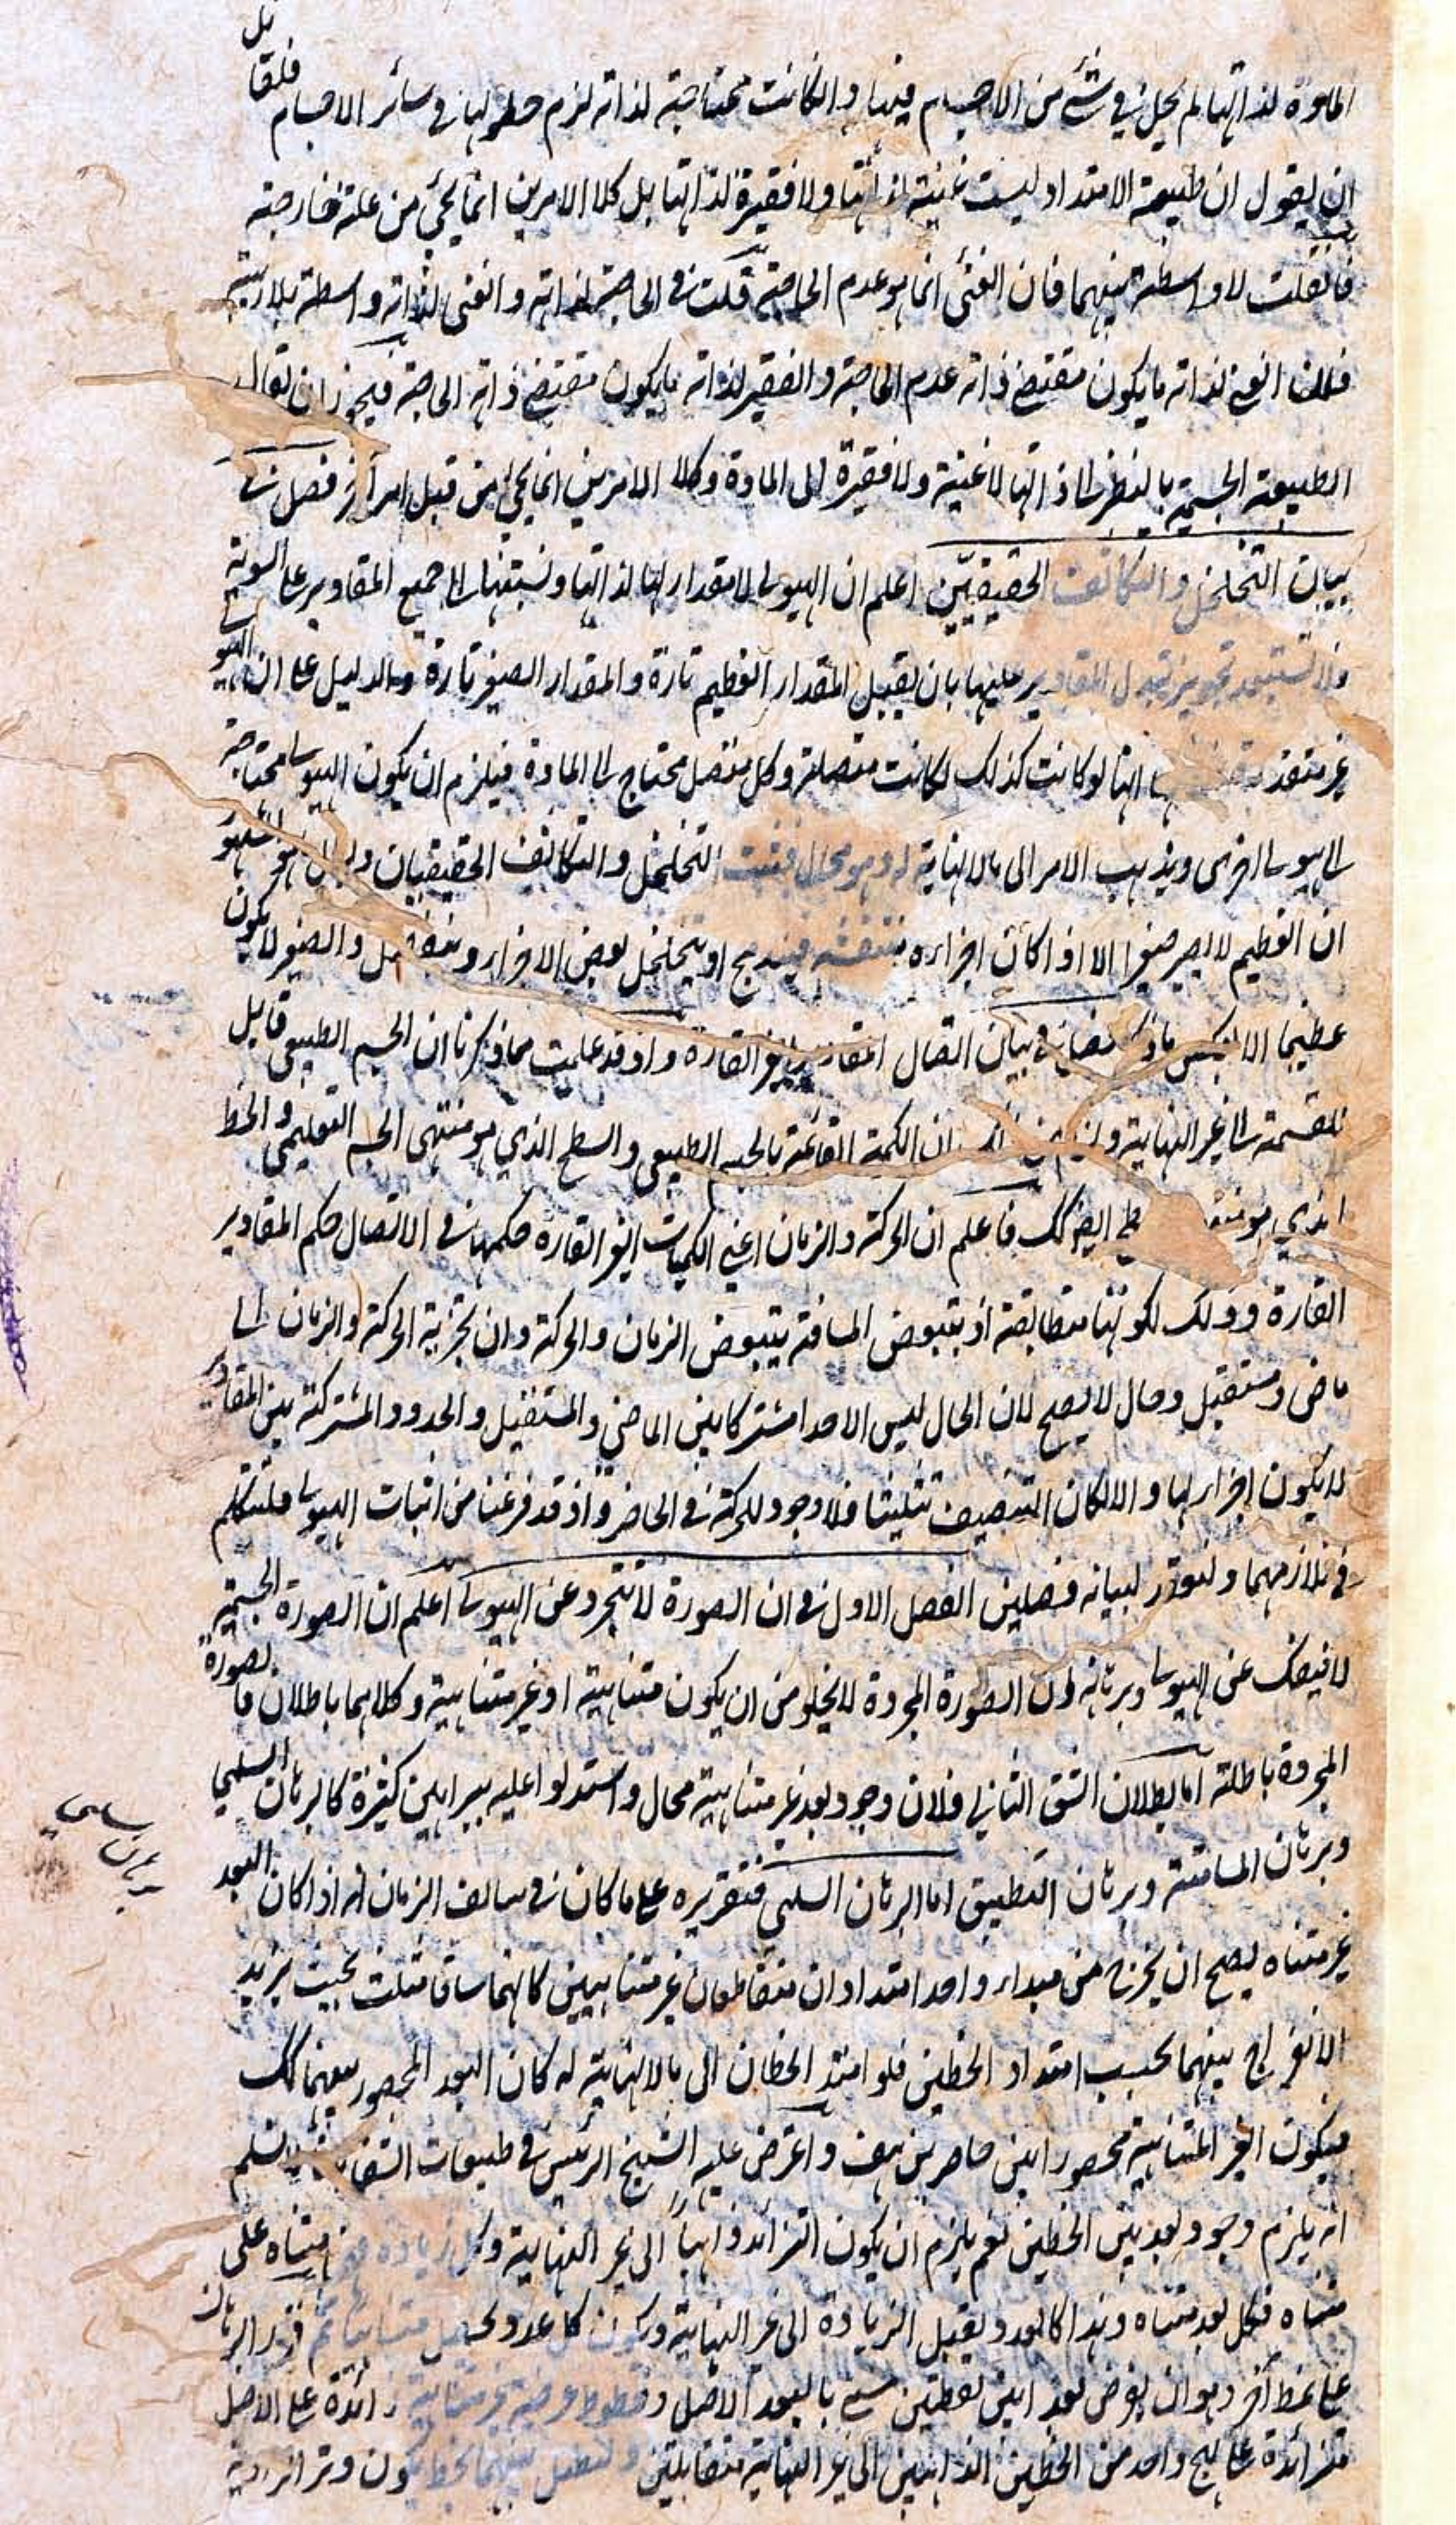 المادة لذاتها لم يحل في شئ من الاجسام فيها وان كانت محتاجة لذاته لزم حلولها في سائر الاجسام فلقائل
ان يقول ان طبيعة الامتداد ليست غنية لذاتها ولا فقيرة لذاتها بل كلا الامرين انما يجئ من علة خارجية
فان قلت لا واسطة بينهما فان الغنى انما هو عدم الحاجة قلت في الحاجة لذاته والغنى لذاته واسطة بلا ريبة
فللن الغنى لذاته ما يكون مقتضى ذاته عدم الحاجة والفقير لذاته ما يكون مقتضى ذاته الحاجة فيجوز ان يقال
الطبيعة الجسمية بالنظر الى ذاتها لا غنية ولا فقيرة الى المادة وكلا الامرين انما يجئ من قبل امر آخر فصل في
بيان التخلخل والتكاثف الحقيقيّين اعلم ان الهيولى لا مقدار لها لذاتها ونسبتها الى جميع المقادير على السوية
فلا تستبعد تجويز تبدل المقادير عليها بان يقبل المقدار العظيم تارة والمقدار الصغير تارة والدليل على ان الهيولى
غير متقدر لذاتها لو كانت كذلك لكانت متصلة وكل متصل محتاج الى المادة فيلزم ان يكون الهيولى محتاجة
الى هيولى اخرى ويذهب الامر الى مالانهاية له وهو محال فثبت التخلخل والتكاثف الحقيقيان والمشهور
ان العظيم لا يصير صغيرا الا اذا كان اجزاءه منتفشة فيندمج او يتخلخل بعض الاجزاء وينفصل والصغير لا يكون
عظيما الا بعكس ما ذكر فصل في بيان اتصال المقادير الغير القارة واذ قد علمت مما ذكرنا ان الجسم الطبيعي قابل
للقسمة الى غير النهاية ان الكمية القائمة بالجسم الطبيعي والسطح الذي هو منتهى الجسم التعليمي والخط
الذي هو منتهى السطح ايضا كك فاعلم ان الحركة والزمان اعني الكميات الغير القارة حكمها في الاتصال حكم المقادير
القارة وذلك لكونها متطابقة اذ بتبعض المسافة يتبعض الزمان والحركة وان تجزية الحركة والزمان الى
ماض ومستقبل وحال لا يصح لان الحال ليس الا حدا مشتركا بين الماضي والمستقبل والحدود المشتركة بين المقادير
لا يكون اجزاء لها والا لكان التنصيف تثليثا فلا وجود للحركة في الحاضر واذ قد فرغنا من اثبات الهيولى فلنتكلم
في تلازمهما ولنورد لبيانه فصلين الفصل الاول في ان الصورة لا تتجرد عن الهيولى اعلم ان الصورة الجسمية
لا ينفك عن الهيولى وبرهانه ان الصورة المجردة لا يخلو من ان يكون متناهية او غير متناهية وكلاهما باطلان فالصورة
المجردة باطلة اما بطلان الشق الثاني فلان وجود بعد غير متناهية محال واستدلوا عليه ببراهين كثيرة كالبرهان السلمي
وبرهان المسامتة وبرهان التطبيق اما البرهان السلمي فتقريره على ما كان في سالف الزمان انه اذا كان البعد
غير متناه يصح ان يخرج من مبداء واحد امتدادان متقاطعان غير متناهيين كانهما ساقا مثلث بحيث يزيد
الانفراج بينهما بحسب امتداد الخطين فلو امتد الخطان الى مالانهاية له كان البعد المحصور بينهما كك
فيكون الغير المتناهية محصورا بين حاصرين هف واعترض عليه الشيخ الرئيس في طبيعات الشفاء لا نسلم
انه يلزم وجود بعد بين الخطين نعم يلزم ان يكون التزائد ذاهبا الى غير النهاية وكل زيادة متناه على
متناه فكل بعد متناه وهذا كالعدد يقبل الزيادة الى غير النهاية ويكون كل عدد متناهيا ثم قرر البرهان
على نمط آخر وهو ان يفرض بعد بين نقطتين مسمى بالبعد الاصل وخطوط عرضية غير متناهية زائدة على الاصل
متزائدة على نهج واحد من الخطين الذاهبين الى غير النهاية متقابلتين
برهان سلمى